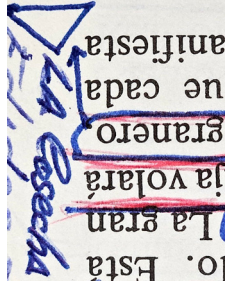 lo. Esta
La gran
ja volará
granero
ue cada
anifiesta
LA Cosecha